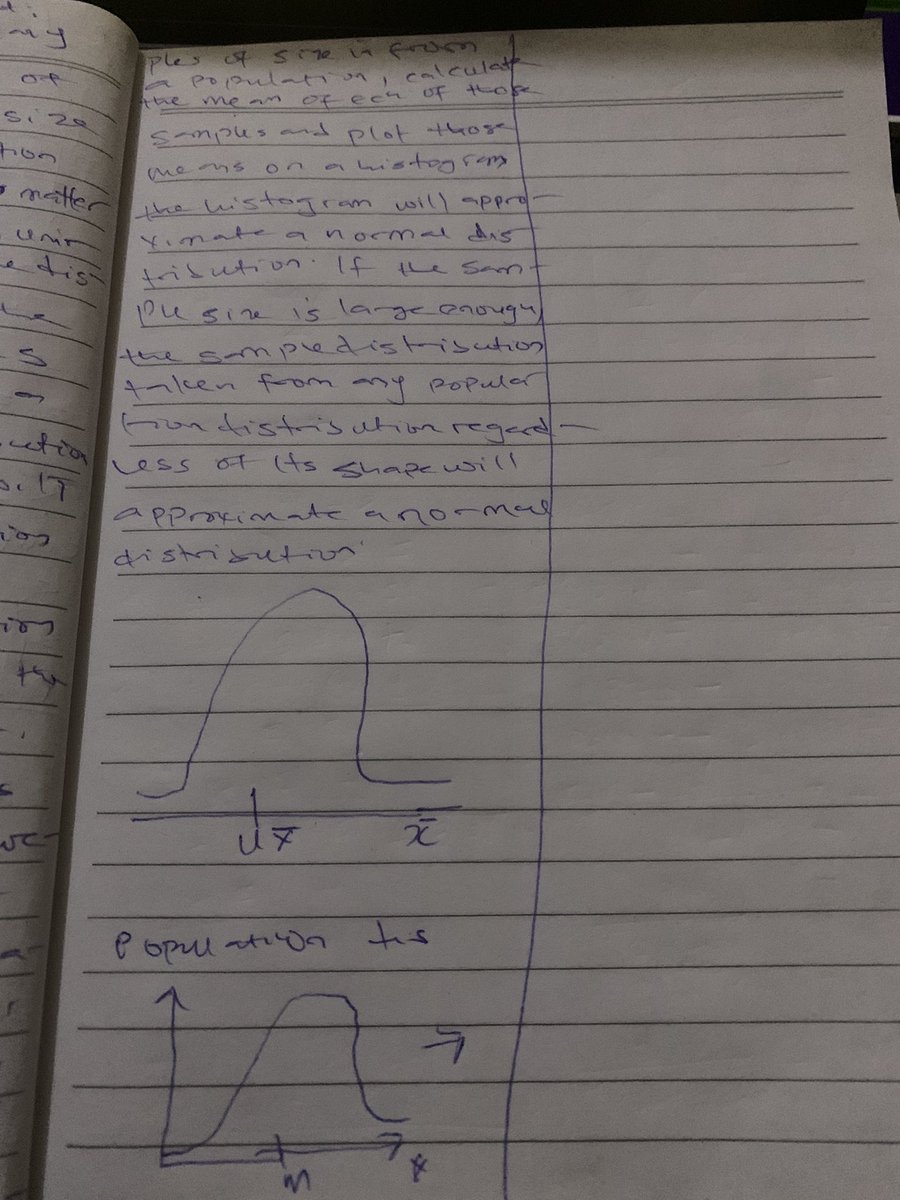 ny
of
size
tion
matter
unir
e dis-
the
s
ution
ion
ples of size in from
a population, calculate
the mean of ech of those
samples and plot those
means on a histogram
the histogram will appro-
ximate a normal dis
tribution. If the sam-
ple size is large enough
the sample distribution
taken from any popular
tion distribution regard-
less of its shape will
approximate a normal
distribution
u x̄
x̄
Population
M
x